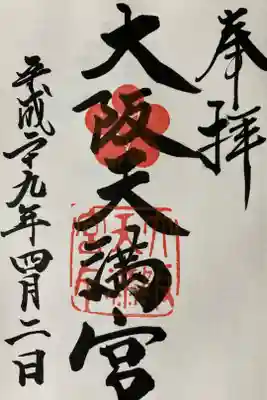 奉拝
大阪天満宮
平成二十九年四月二日